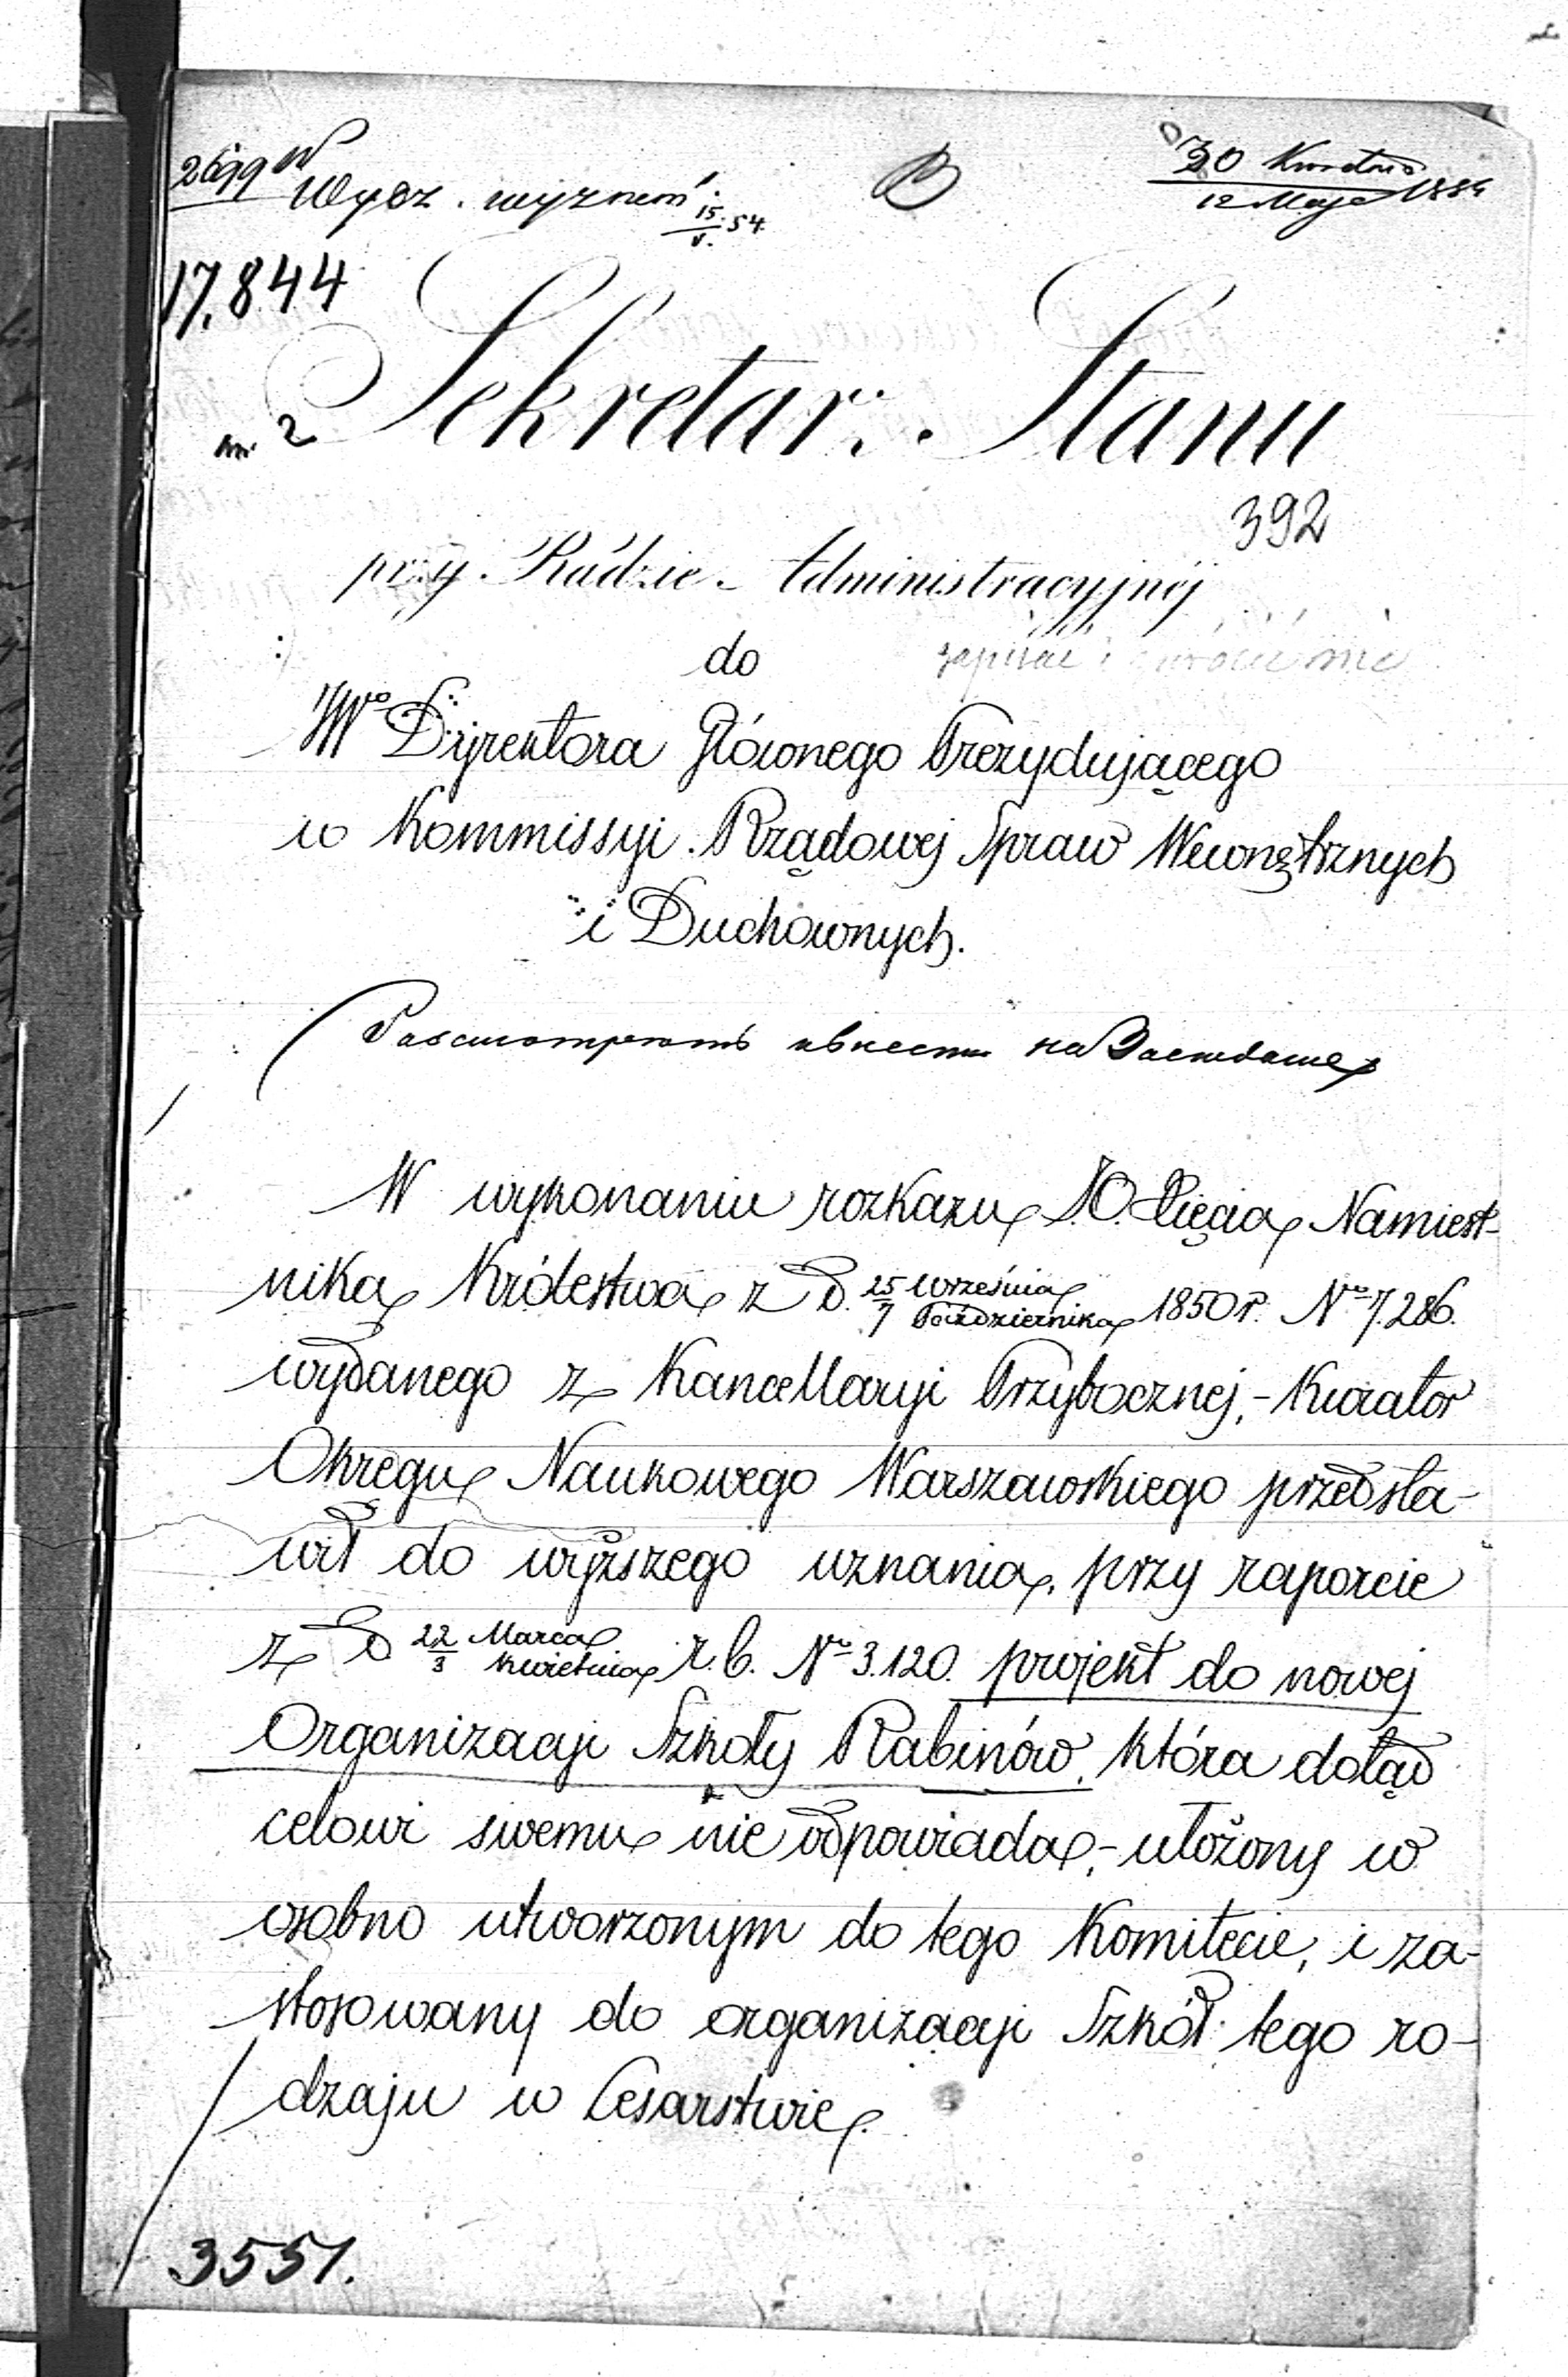 Wydz. wyznań
15/V. 54.
30 Kwietnia
12 Maja 1854
17,844
Sekretarz Stanu
nr. 2
392
przy Radzie Administracyjnej
do
zapisać i
JWo Dyrektora Głównego Prezydującego
w Kommissyi Rządowej Spraw Wewnętrznych
i Duchownych.
Разсмотреть и внести на Заседание
W wykonaniu rozkazu J.O. Xięcia Namiest-
nika Królestwa z d. 25 Września/7 Października 1850 r. No 7.286.
wydanego z Kancellaryi Przybocznej,- Kurator
Okręgu Naukowego Warszawskiego przedsta-
wił do wyższego uznania, przy raporcie
z d 22 Marca/3 Kwietnia r. b. No 3.120. projekt do nowej
Organizacji Szkoły Rabinów, która dotąd
celowi swemu nie odpowiada,- ułożony w
osobno utworzonym do tego Komitecie, i za-
stosowany do organizacji Szkół tego ro-
dzaju w Cesarstwie.
3551.